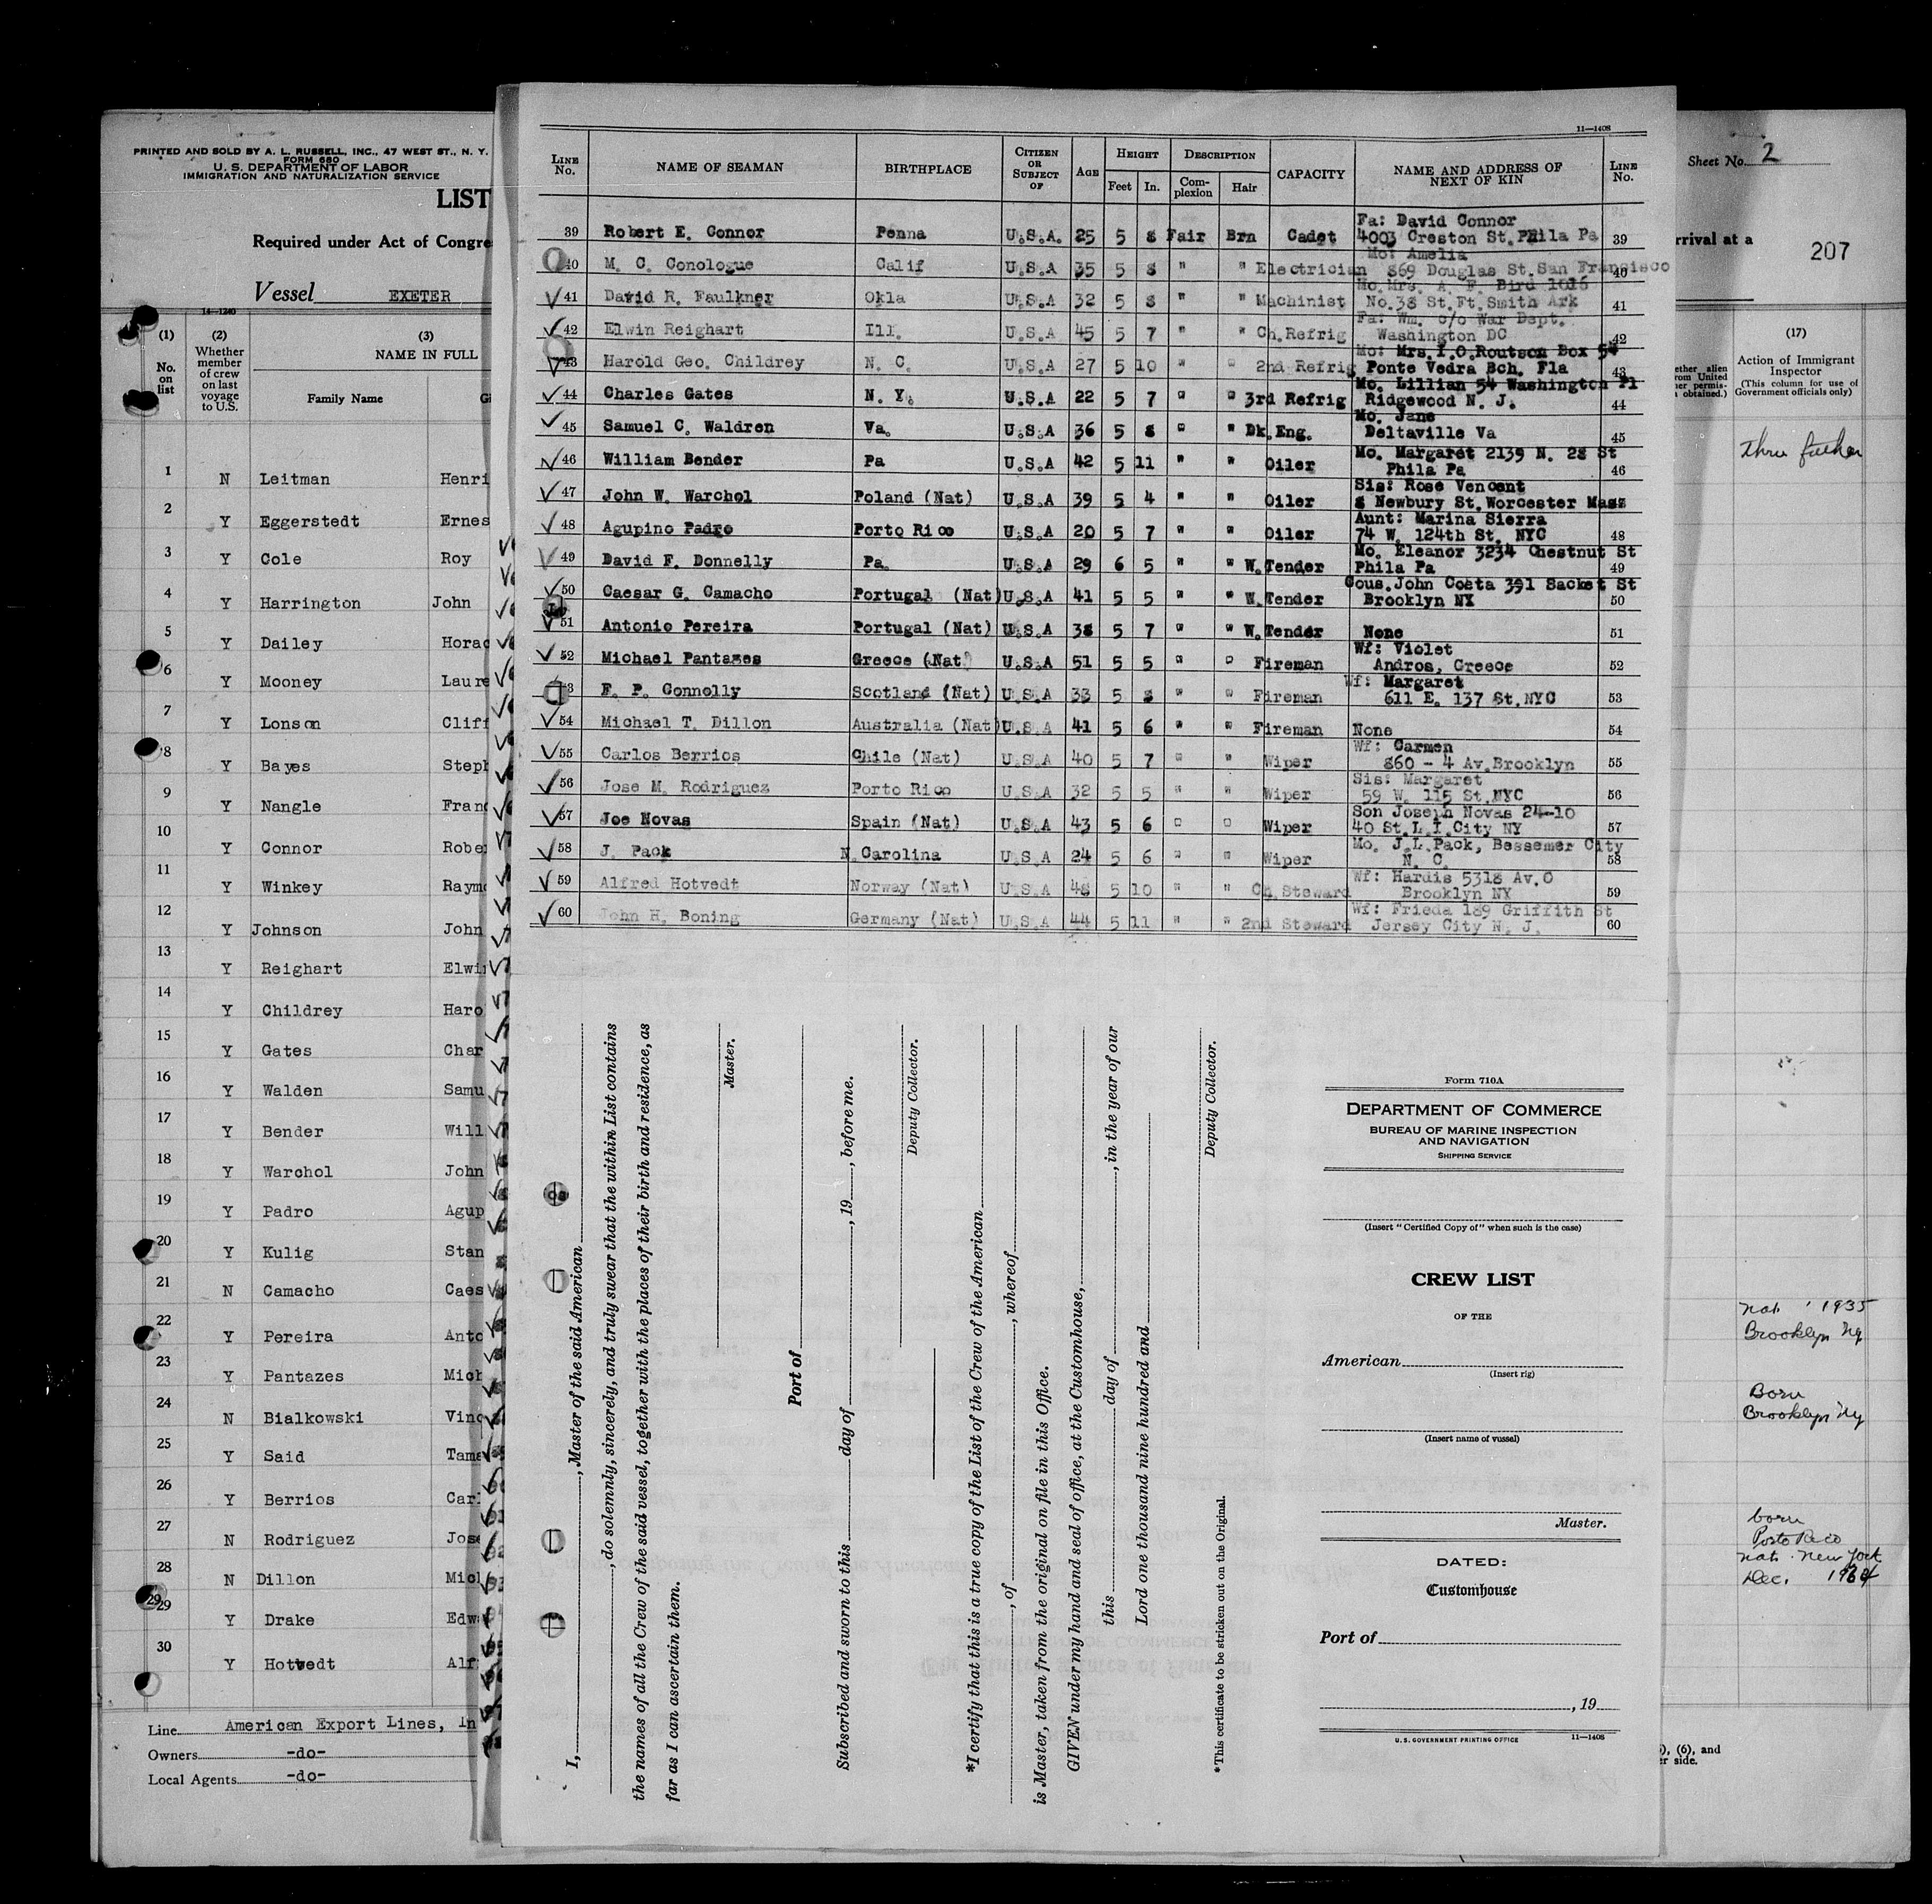 PRINTED AND SOLD BY A. L. RUSSELL, INC., 47 WEST ST., N. Y.
FORM 680
U. S. DEPARTMENT OF LABOR
IMMIGRATION AND NATURALIZATION SERVICE
LIST
Required under Act of Congre
Vessel EXETER
14-1240
(1) (2) (3)
No. on list Whether member of crew on last voyage to U.S. NAME IN FULL
Family Name G
1 N Leitman Henri
2 Y Eggerstedt Ernes
3 Y Cole Roy
4 Y Harrington John
5 Y Dailey Horac
6 Y Mooney Laure
7 Y Lonson Cliff
8 Y Bayes Steph
9 Y Nangle Fran
10 Y Connor Robe
11 Y Winkey Raym
12 Y Johnson John
13 Y Reighart Elwi
14 Y Childrey Haro
15 Y Gates Char
16 Y Walden Samu
17 Y Bender Will
18 Y Warchol John
19 Y Padro Agup
20 Y Kulig Stan
21 N Camacho Caes
22 Y Pereira Anto
23 Y Pantazes Mich
24 N Bialkowski Vinc
25 Y Said Tama
26 Y Berrios Carl
27 N Rodriguez Jos
28 N Dillon Mic
29 Y Drake Edw
30 Y Hotvedt Alf
Line American Export Lines, In
Owners -do-
Local Agents -do-
11—1408
LINE No. NAME OF SEAMAN BIRTHPLACE CITIZEN OR SUBJECT OF AGE HEIGHT DESCRIPTION CAPACITY NAME AND ADDRESS OF NEXT OF KIN LINE No.
Feet In. Complexion Hair
Fa: David Connor
39 Robert E. Connor Penna U.S.A. 25 5 8 Fair Brn Cadet 4003 Creston St. Phila Pa 39
Mo: Amelia
40 M. C. Conologue Calif U.S.A 35 5 8 " " Electrician 869 Douglas St. San Francisco 40
Mo. Mrs. A. F. Bird 1016
41 David R. Faulkner Okla U.S.A 32 5 8 " " Machinist No. 38 St. Ft. Smith Ark 41
Fa: Wm. c/o War Dept.
42 Elwin Reighart Ill. U.S.A 45 5 7 " " Ch.Refrig Washington DC 42
Mo: Mrs. I.O. Routson Box 54
43 Harold Geo. Childrey N. C. U.S.A 27 5 10 " " 2nd Refrig Ponte Vedra Bch. Fla 43
Mo. Lillian 54 Washington Pl
44 Charles Gates N. Y. U.S.A 22 5 7 " " 3rd Refrig Ridgewood N. J. 44
Mo. Jane
45 Samuel C. Waldren Va. U.S.A 36 5 8 " " Dk.Eng. Deltaville Va 45
Mo. Margaret 2139 N. 28 St
46 William Bender Pa U.S.A 42 5 11 " " Oiler Phila Pa 46
Sis: Rose Vencent
47 John W. Warchol Poland (Nat) U.S.A 39 5 4 " " Oiler 8 Newbury St. Worcester Mass
Aunt: Marina Sierra
48 Agupino Padro Porto Rico U.S.A 20 5 7 " " Oiler 74 W. 124th St. NYC 48
Mo. Eleanor 3234 Chestnut St
49 David F. Donnelly Pa. U.S.A 29 6 5 " " W.Tender Phila Pa 49
Cous. John Costa 391 Sacket St
50 Caesar G. Camacho Portugal (Nat) U.S.A 41 5 5 " " W.Tender Brooklyn NY 50
51 Antonio Pereira Portugal (Nat) U.S.A 38 5 7 " " W.Tender None 51
Wf: Violet
52 Michael Pantazes Greece (Nat) U.S.A 51 5 5 " " Fireman Andros, Greece 52
Wf: Margaret
53 F. P. Connolly Scotland (Nat) U.S.A 33 5 8 " " Fireman 611 E. 137 St. NYC 53
54 Michael T. Dillon Australia (Nat) U.S.A 41 5 6 " " Fireman None 54
Wf: Carmen
55 Carlos Berrios Chile (Nat) U.S.A 40 5 7 " " Wiper 860 - 4 Av. Brooklyn 55
Sis: Margaret
56 Jose M. Rodriguez Porto Rico U.S.A 32 5 5 " " Wiper 59 W. 115 St. NYC 56
Son Joseph Novas 24-10
57 Joe Novas Spain (Nat) U.S.A 43 5 6 " " Wiper 40 St. L.I.City NY 57
Mo. J.L.Pack, Bessemer City
58 J. Pack N Carolina U S A 24 5 6 " " Wiper N. C. 58
Wf: Hardis 5318 Av. O
59 Alfred Hotvedt Norway (Nat) U.S.A 48 5 10 " " Ch Steward Brooklyn NY 59
Wf: Frieda 189 Griffith St
60 John H. Boning Germany (Nat) U.S.A 44 5 11 " " 2nd Steward Jersey City N. J. 60
I, , Master of the said American
, do solemnly, sincerely, and truly swear that the within List contains
the names of all the Crew of the said vessel, together with the places of their birth and residence, as
far as I can ascertain them.
Master.
Port of
Subscribed and sworn to this day of , 19 , before me.
Deputy Collector.
*I certify that this is a true copy of the List of the Crew of the American
, of , whereof
is Master, taken from the original on file in this Office.
GIVEN under my hand and seal of office, at the Customhouse,
this day of , in the year of our
Lord one thousand nine hundred and
Deputy Collector.
*This certificate to be stricken out on the Original.
Form 710A
DEPARTMENT OF COMMERCE
BUREAU OF MARINE INSPECTION
AND NAVIGATION
SHIPPING SERVICE
(Insert "Certified Copy of" when such is the case)
CREW LIST
OF THE
American
(Insert rig)
(Insert name of vessel)
Master.
DATED:
Customhouse
Port of
, 19
U.S. GOVERNMENT PRINTING OFFICE 11—1408
Sheet No. 2
rrival at a
207
(17)
Action of Immigrant Inspector
(This column for use of Government officials only)
ether alien
rom United
er permis-
obtained.)
thru father
nat. 1935
Brooklyn Ny
Born
Brooklyn Ny
born
Porto Rico
nat. New York
Dec. 1934
), (6), and
r side.